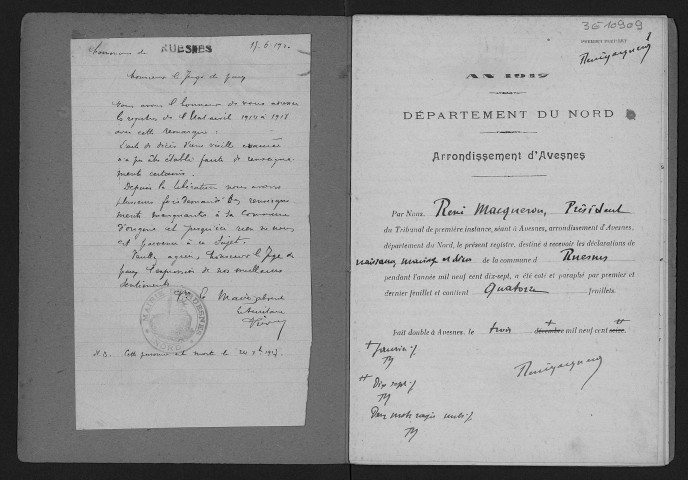 Commune de RUESNES 17-6-19
Monsieur le Juge de paix
Nous avons l'honneur de vous adresser
les registres de l'Etat civil 1914 à 1918
avec cette remarque :
L'acte de décès d'une vieille
n'a pu être établi faute de renseigne
ments certains.
Depuis la libération nous avons
plusieurs fois demandé les renseigne
ments manquants à la Commune
d'origine et jusqu'ici rien ne nous
est parvenu à ce sujet.
Veuillez agréer, Monsieur le Juge de
paix, l'expression de nos meilleurs
sentiments
Le Maire absent
le Secrétaire
MAIRIE DE RUESNES
NORD
N.B. Cette personne est morte le 20 9bre 1917
3E10909
1
AN 1917
DÉPARTEMENT DU NORD
Arrondissement d'Avesnes
Par Nous René Macqueron, Président
du Tribunal de première instance, séant à Avesnes, arrondissement d'Avesnes,
département du Nord, le présent registre, destiné à recevoir les déclarations de
naissances, mariages et décès de la commune d Ruesnes
pendant l'année mil neuf cent dix-sept, a été coté et paraphé par premier et
dernier feuillet et contient Quatorze feuillets.
Fait double à Avesnes, le trois décembre mil neuf cent seize.
+ Janvier
++ Dix sept
Deux mots rayés nuls